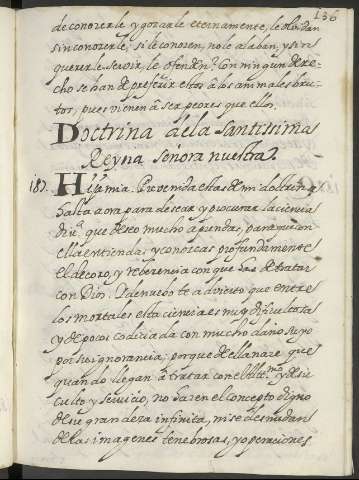 136
de conocerle y gozarle eternamente, le olvidan
sin conocerle, si le conocen, no le alaban, y sin
quererle servir le ofenden? Con ningun dere-
cho se han de preferir estos à los animales bru-
tos, pues vienen à ser peores que ellos.
Doctrina de la Santissima
Reyna señora nuestra.
187. Hija mia. Prevenida estas de mi doctrina
hasta aora para desear y procurar la ciencia
diu.ª que deseo mucho aprendas, para que con
ella entiendas, y conozcas profundamente
el decoro, y reberencia con que has de tratar
con Dios. I de nuebo te advierto que entre
los mortales esta ciencia es muy dificultosa
y de pocos codiciada con mucho daño suyo
por su ignorancia; porque de ella nace que
quando llegan à tratar con el Altt.mo y de su
culto y servicio, no hacen el concepto digno
de su grandeza infinita, ni se desnudan
de las imagenes tenebrosas, y operaciones